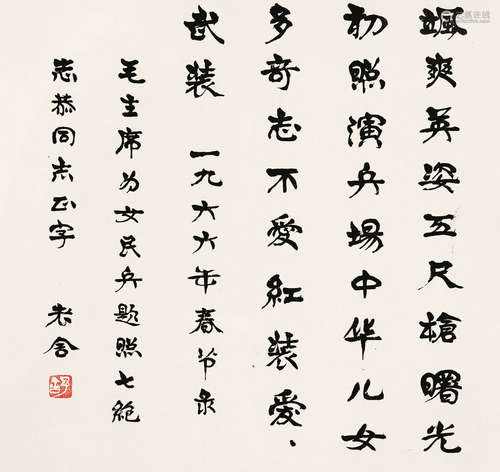 颯爽英姿五尺槍曙光
初照演兵場中华儿女
多奇志不愛紅装愛、
武装 一九六六年春节录
毛主席为女民兵題照七绝
志恭同志正字 老舍